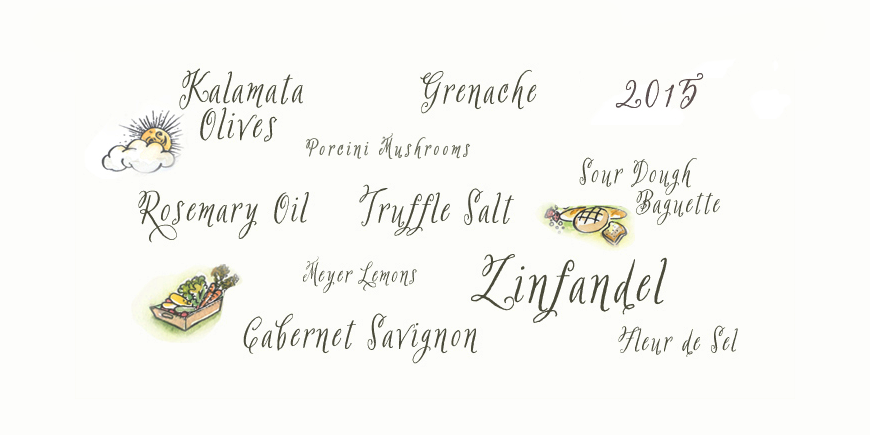 Kalamata
Olives
Grenache
2015
Porcini Mushrooms
Sour Dough
Baguette
Rosemary Oil
Truffle Salt
Meyer Lemons
Zinfandel
Cabernet Savignon
Fleur de Sel